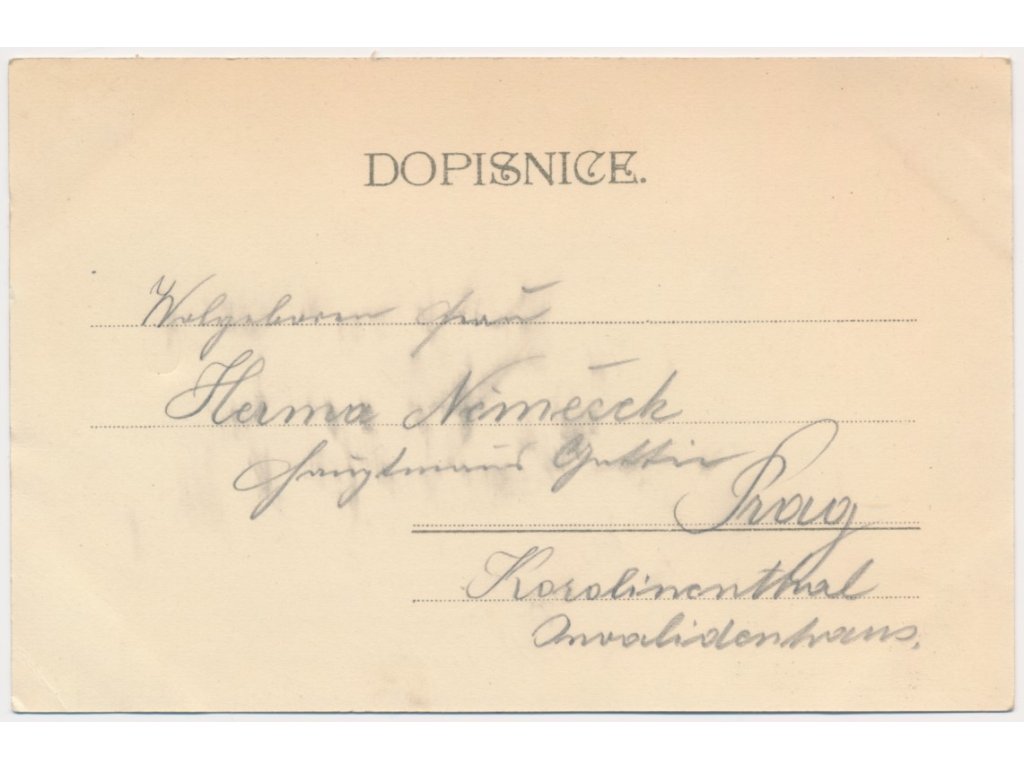 DOPISNICE.
Wolgeboren Frau
Herma Němeček
Hauptmans Gattin
Prag
Karolinenthal
Invalidenhaus.